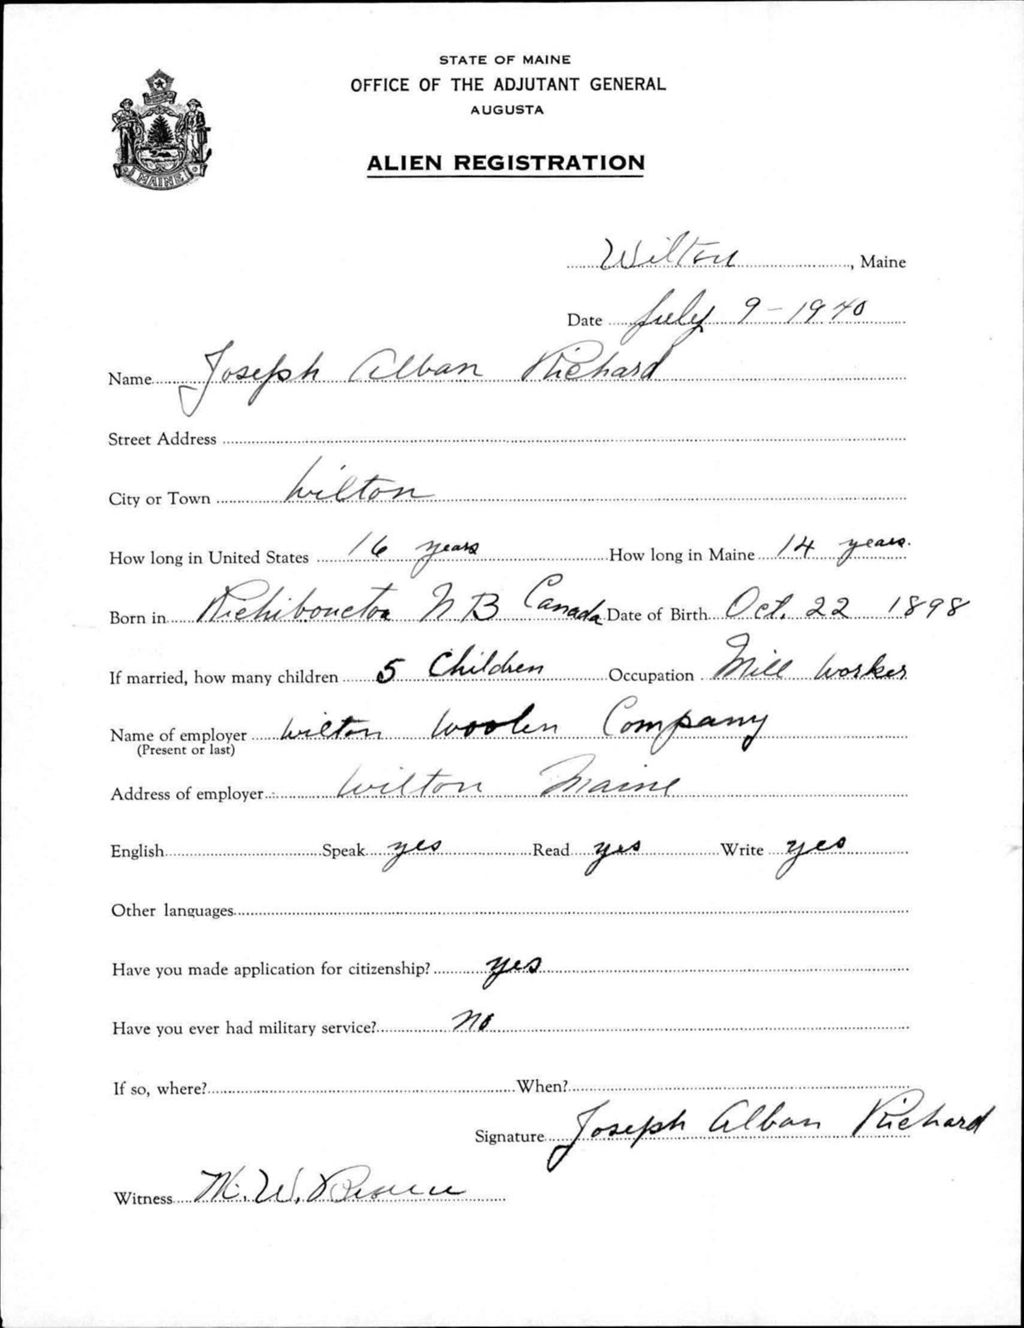 STATE OF MAINE
OFFICE OF THE ADJUTANT GENERAL
AUGUSTA
MAINE
ALIEN REGISTRATION
Wilton, Maine
Date July 9-1940
Name Joseph Alban Richard
Street Address
City or Town Wilton
How long in United States 16 years How long in Maine 14 years.
Born in Richiboucton NB Canada Date of Birth Oct. 22 1898
If married, how many children 5 Children Occupation Mill worker
Name of employer Wilton Woolen Company
(Present or last)
Address of employer Wilton Maine
English Speak yes Read yes Write yes
Other languages
Have you made application for citizenship? yes
Have you ever had military service? no
If so, where? When?
Signature Joseph Alban Richard
Witness M. W.